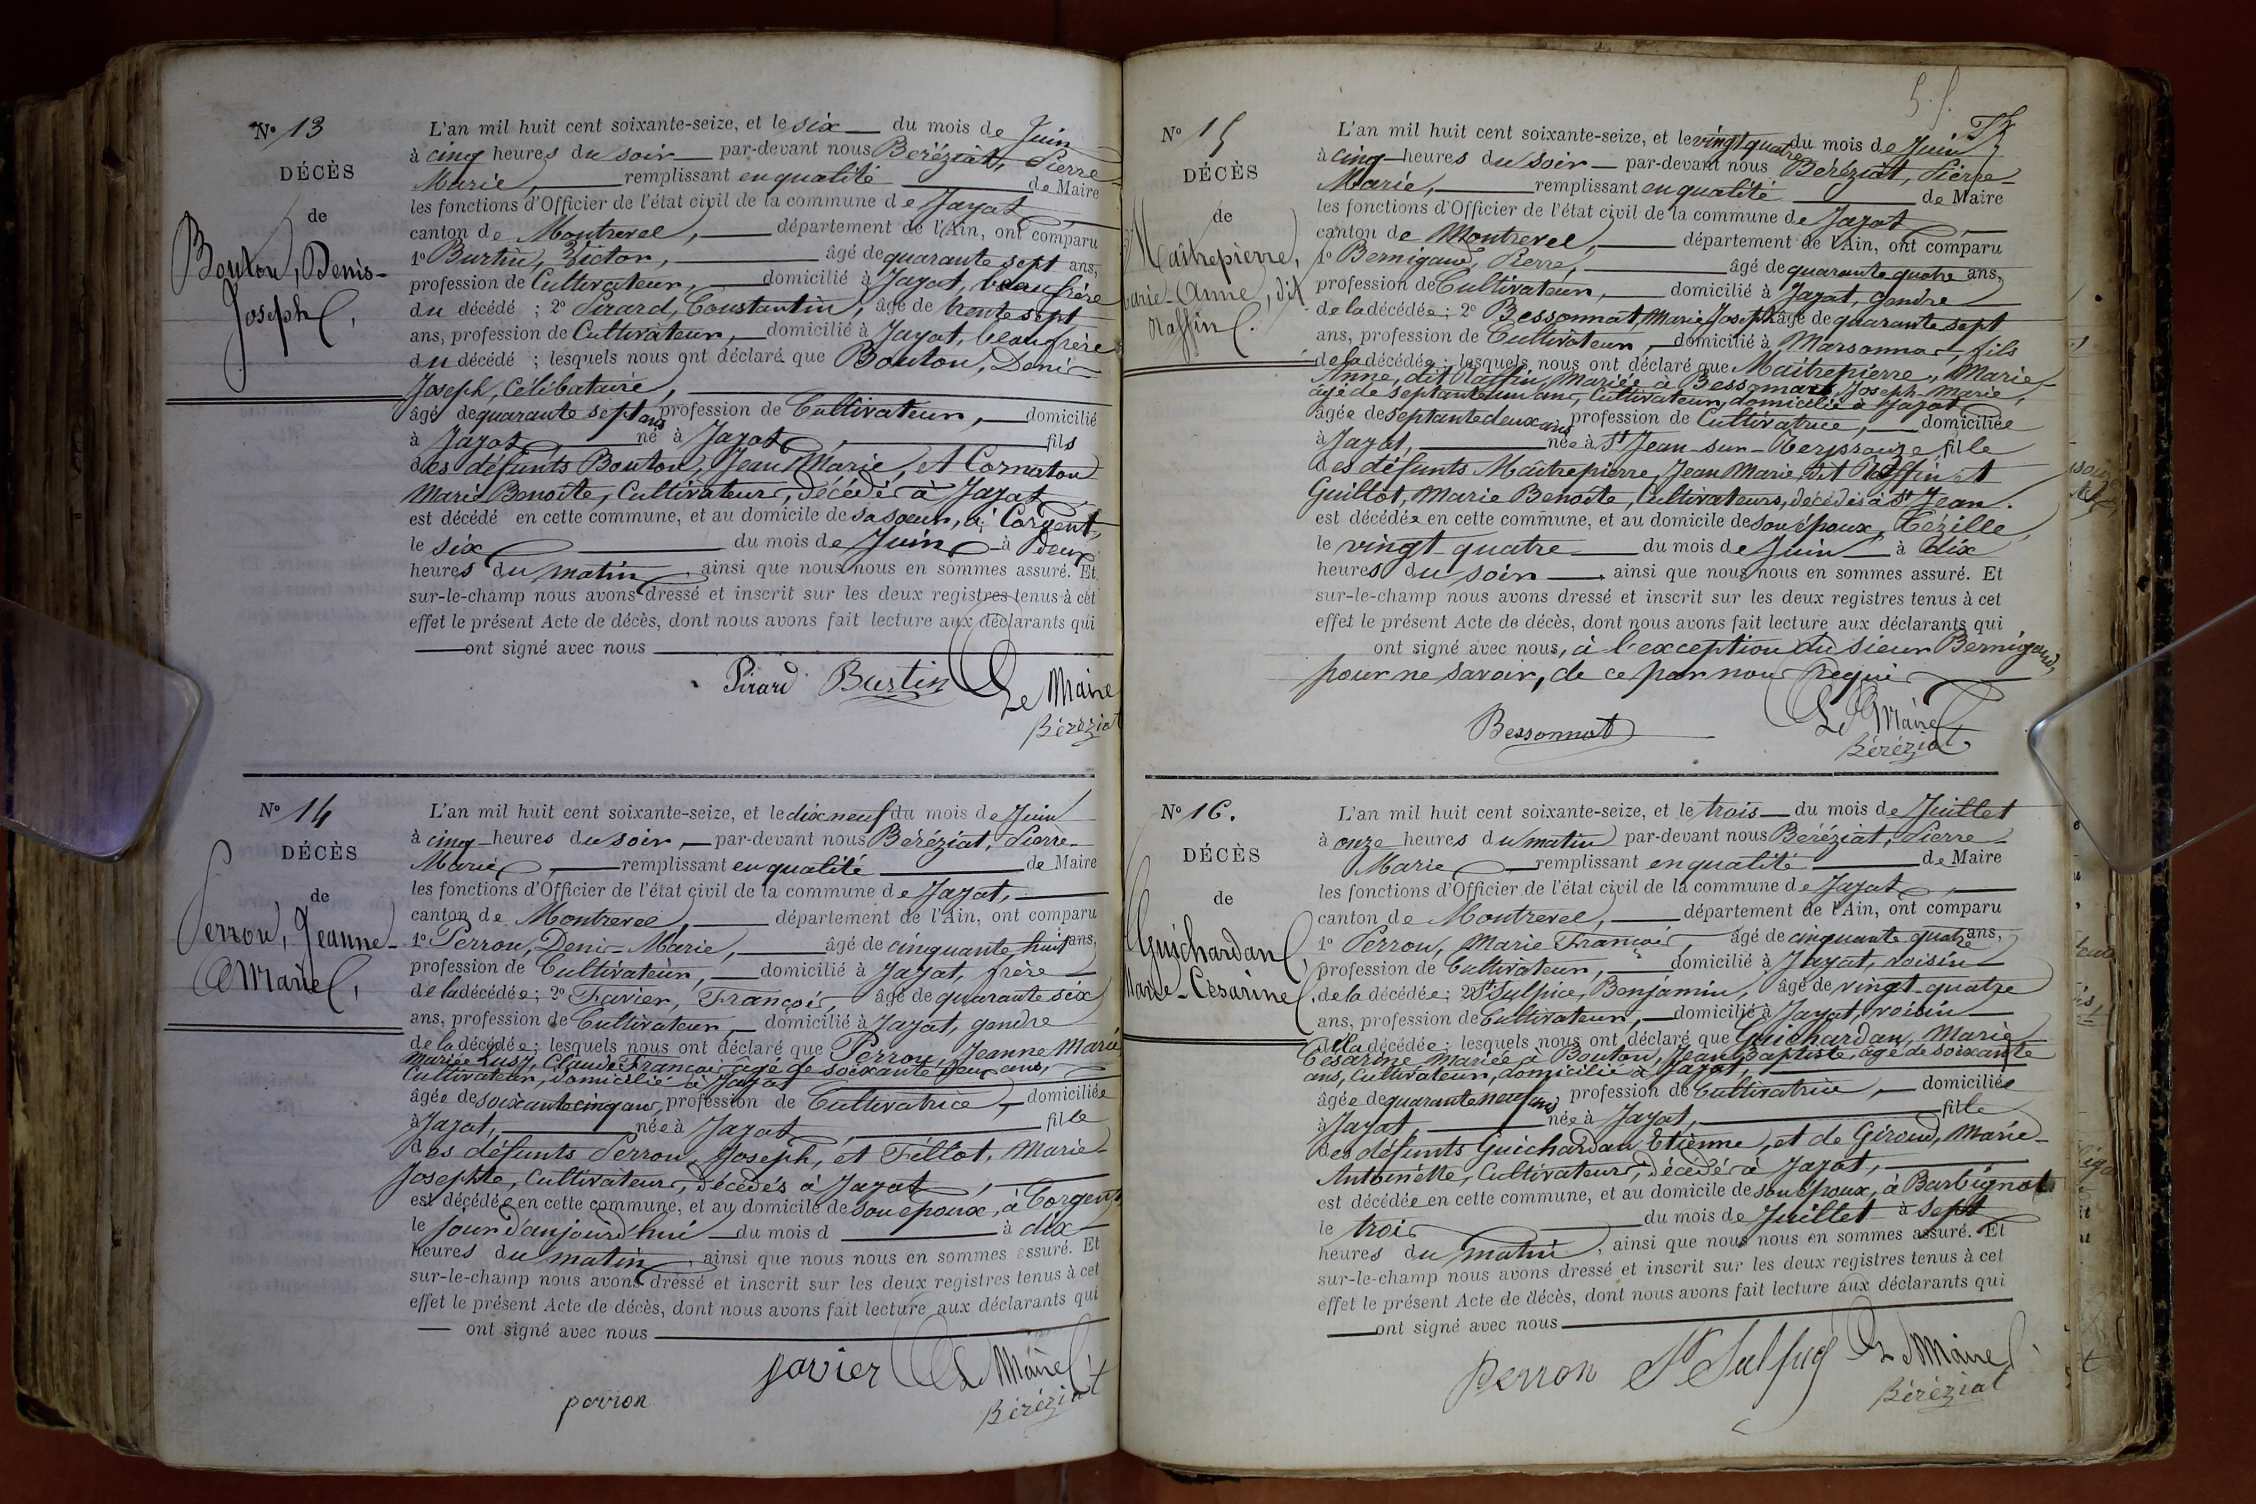 N° 13
DÉCÈS
de
Bouton, Denis-
Joseph,
L'an mil huit cent soixante-seize, et le six du mois de Juin
à cinq heures du soir par-devant nous Béréziat, Pierre-
Marie, remplissant en qualité de Maire
les fonctions d'Officier de l'état civil de la commune de Jayat,
canton de Montrevel, département de l'Ain, ont comparu
1° Burtin, Victor, âgé de quarante sept ans,
profession de Cultivateur, domicilié à Jayat, beau frère
du décédé ; 2° Pirard, Constantin, âgé de trente sept
ans, profession de Cultivateur, domicilié à Jayat, beau frère
du décédé ; lesquels nous ont déclaré que Bouton, Denis
Joseph, Célibataire,
âgé de quarante sept ans profession de Cultivateur, domicilié
à Jayat né à Jayat, fils
des défunts Bouton, Jean Marie, et Cornaton
Marie Benoite, Cultivateurs, décédés à Jayat
est décédé en cette commune, et au domicile de sa soeur, à Corgent,
le six du mois de Juin à deux
heures du matin, ainsi que nous nous en sommes assuré. Et
sur-le-champ nous avons dressé et inscrit sur les deux registres tenus à cet
effet le présent Acte de décès, dont nous avons fait lecture aux déclarants qui
ont signé avec nous
Pirard Burtin Le Maire
Béréziat
N° 14
DÉCÈS
de
Perron, Jeanne-
Marie,
L'an mil huit cent soixante-seize, et le dix neuf du mois de Juin
à cinq heures du soir, par-devant nous Béréziat, Pierre-
Marie, remplissant en qualité de Maire
les fonctions d'Officier de l'état civil de la commune de Jayat,
canton de Montrevel, département de l'Ain, ont comparu
1° Perron, Denis-Marie, âgé de cinquante huit ans,
profession de Cultivateur, domicilié à Jayat, frère
de la décédée ; 2° Favier, François, âgé de quarante six
ans, profession de Cultivateur, domicilié à Jayat, gendre
de la décédée ; lesquels nous ont déclaré que Perron, Jeanne Marie
Mariée Lusy, Claude François âgé de soixante deux ans,
Cultivateur, domicilié à Jayat
âgée de soixante cinq ans, profession de Cultivatrice, domiciliée
à Jayat, née à Jayat, fille
des défunts Perron, Joseph, et Fillot, Marie-
Josephte, Cultivateurs, décédés à Jayat,
est décédée en cette commune, et au domicile de son époux, à Corgent,
le jour d'aujourd'hui du mois d à dix
heures du matin, ainsi que nous nous en sommes assuré. Et
sur-le-champ nous avons dressé et inscrit sur les deux registres tenus à cet
effet le présent Acte de décès, dont nous avons fait lecture aux déclarants qui
ont signé avec nous
favier Le Maire
perron Béréziat
N° 15
DÉCÈS
de
Maîtrepierre,
Marie-Anne, dit
Raffin.
L'an mil huit cent soixante-seize, et le vingt quatre du mois de Juin
à cinq heures du soir par-devant nous Béréziat, Pierre-
Marie, remplissant en qualité de Maire
les fonctions d'Officier de l'état civil de la commune de Jayat,
canton de Montrevel, département de l'Ain, ont comparu
1° Bernigaud, Pierre, âgé de quarante quatre ans,
profession de Cultivateur, domicilié à Jayat, gendre
de la décédée ; 2° Bessonnat, Marie Joseph âgé de quarante sept
ans, profession de Cultivateur, domicilié à Marsonnas, fils
de la décédée ; lesquels nous ont déclaré que Maîtrepierre, Marie-
Anne, dit Raffin, Mariée à Bessonnat, Joseph-Marie,
âgé de septante un ans, Cultivateur, domicilié à Jayat
âgée de septante deux ans profession de Cultivatrice, domiciliée
à Jayat, née à St Jean-sur-Reyssouze fille
des défunts Maîtrepierre, Jean Marie dit Raffin et
Guillot, Marie Benoite, Cultivateurs, décédés à St Jean.
est décédée en cette commune, et au domicile de son époux, Cézille,
le vingt quatre du mois de Juin à dix
heures du soir, ainsi que nous nous en sommes assuré. Et
sur-le-champ nous avons dressé et inscrit sur les deux registres tenus à cet
effet le présent Acte de décès, dont nous avons fait lecture aux déclarants qui
ont signé avec nous, à l'exception du sieur Bernigaud,
pour ne savoir, de ce par nous Requis
Bessonnat Le Maire
Béréziat
N° 16.
DÉCÈS
de
Guichardan,
Marie-Césarine,
L'an mil huit cent soixante-seize, et le trois du mois de Juillet
à onze heures du matin par-devant nous Béréziat, Pierre-
Marie remplissant en qualité de Maire
les fonctions d'Officier de l'état civil de la commune de Jayat,
canton de Montrevel, département de l'Ain, ont comparu
1° Perron, Marie François, âgé de cinquante quatre ans,
profession de Cultivateur, domicilié à Jayat, voisin
de la décédée ; 2° St Sulpice, Benjamin, âgé de vingt-quatre
ans, profession de Cultivateur, domicilié à Jayat, voisin
de la décédée ; lesquels nous ont déclaré que Guichardan, Marie
Césarine Mariée à Bouton, Jean Baptiste, âgé de soixante
ans, Cultivateur, domicilié à Jayat,
âgée de quarante neuf ans profession de Cultivatrice, domiciliée
à Jayat, née à Jayat, fille
des défunts Guichardan, Etienne, et de Giroud, Marie-
Antoinette, Cultivateurs, décédés à Jayat,
est décédée en cette commune, et au domicile de son époux, à Barbignat
le trois du mois de Juillet à sept
heures du matin, ainsi que nous nous en sommes assuré. Et
sur-le-champ nous avons dressé et inscrit sur les deux registres tenus à cet
effet le présent Acte de décès, dont nous avons fait lecture aux déclarants qui
ont signé avec nous
perron St Sulpice Le Maire
Béréziat